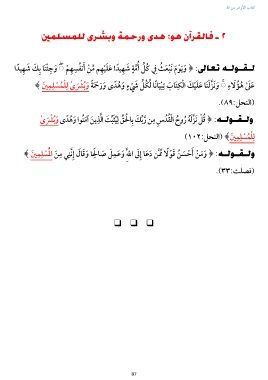 كتاب الأرض من الله
٢ - فالقرآن هو: هدى ورحمة وبشرى للمسلمين
لقوله تعالى: ﴿ وَيَوْمَ نَبْعَثُ فِي كُلِّ أُمَّةٍ شَهِيدًا عَلَيْهِم مِّنْ أَنفُسِهِمْ ۖ وَجِئْنَا بِكَ شَهِيدًا
عَلَىٰ هَٰؤُلَاءِ ۚ وَنَزَّلْنَا عَلَيْكَ الْكِتَابَ تِبْيَانًا لِّكُلِّ شَيْءٍ وَهُدًى وَرَحْمَةً وَبُشْرَىٰ لِلْمُسْلِمِينَ ﴾
(النحل:٨٩).
ولقوله: ﴿ قُلْ نَزَّلَهُ رُوحُ الْقُدُسِ مِن رَّبِّكَ بِالْحَقِّ لِيُثَبِّتَ الَّذِينَ آمَنُوا وَهُدًى وَبُشْرَىٰ
لِلْمُسْلِمِينَ﴾ (النحل:١٠٢)
ولقوله: ﴿ وَمَنْ أَحْسَنُ قَوْلًا مِّمَّن دَعَا إِلَى اللَّهِ وَعَمِلَ صَالِحًا وَقَالَ إِنَّنِي مِنَ الْمُسْلِمِينَ ﴾
(فصلت:٣٣).
87